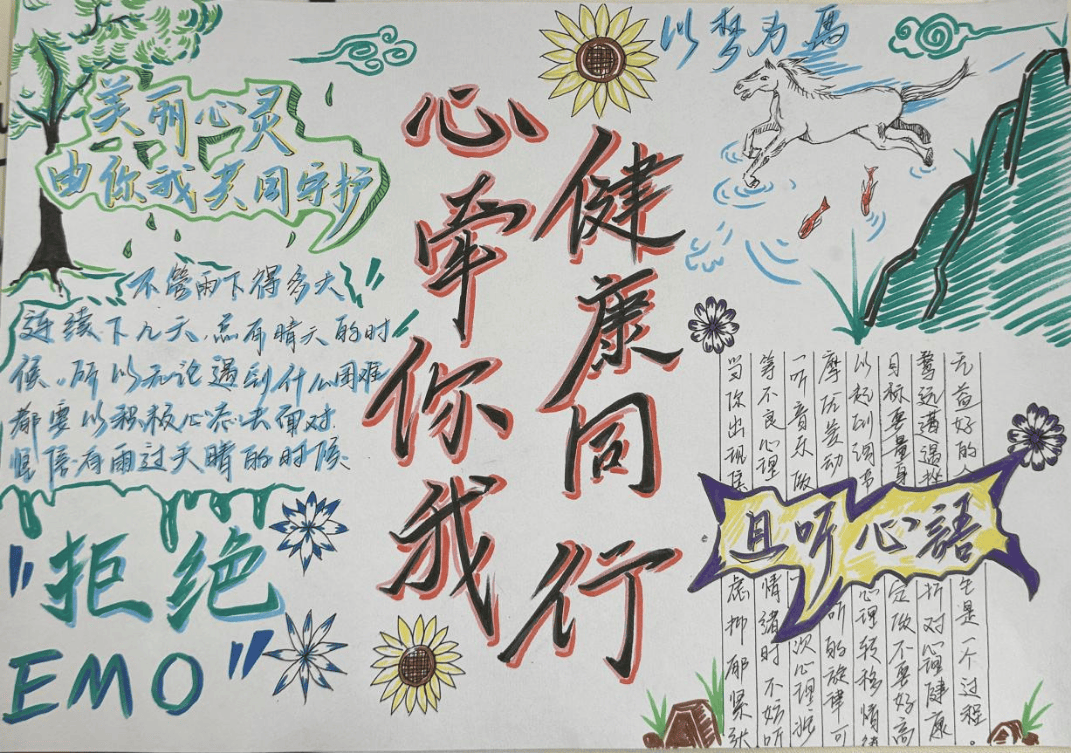 美丽心灵
由你我共同守护
不管雨下得多大
连续下几天,总有晴天的时
候。所以无论遇到什么困难
都要以积极心态去面对
坚信有雨过天晴的时候
"拒绝
EMO"
心牵你我
健康同行
以梦为馬
且听心語
当你出现 虑抑郁紧张
等不良心理情绪时不妨听
一听音乐做一次心理
摩优美动听的旋律可
以起到调节心理转移情绪
目标要量身定做不要好高
骛远遭遇挫折对心理健康
无益好的 是一个过程。